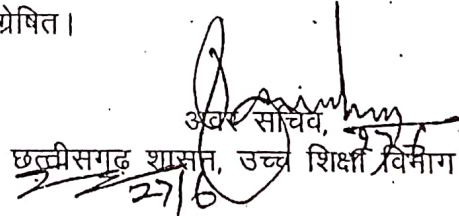 ग्रेषित।
अवर सचिव,
छत्तीसगढ़ शासन, उच्च शिक्षा विभाग
27/6